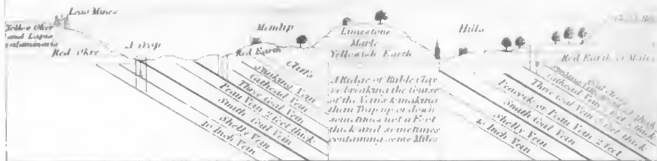 Lead Mines
Yellow Oker
and Lapis
calaminaris
Red Okre
A Trop
Mendip
Red Earth
Clives
Limestone
Marle
Yellowish Earth
Hills
Red Earth or Marle
Stinking Vein
Cathead Vein
Three Coal Vein
Peau Vein 2 Feet thick
Smith Coal Vein
Shelly Vein
10 Inch Vein
A Ridge or Rubble Clay
breaking the Course
of the Veins & making
them Trap up or down
sometimes not a Foot
thick and sometimes
containing some Miles
Stinking Vein
Cathead Vein
Three Coal Vein
Peacock or Peau Vein
Smith Coal Vein
Shelly Vein
10 Inch Vein